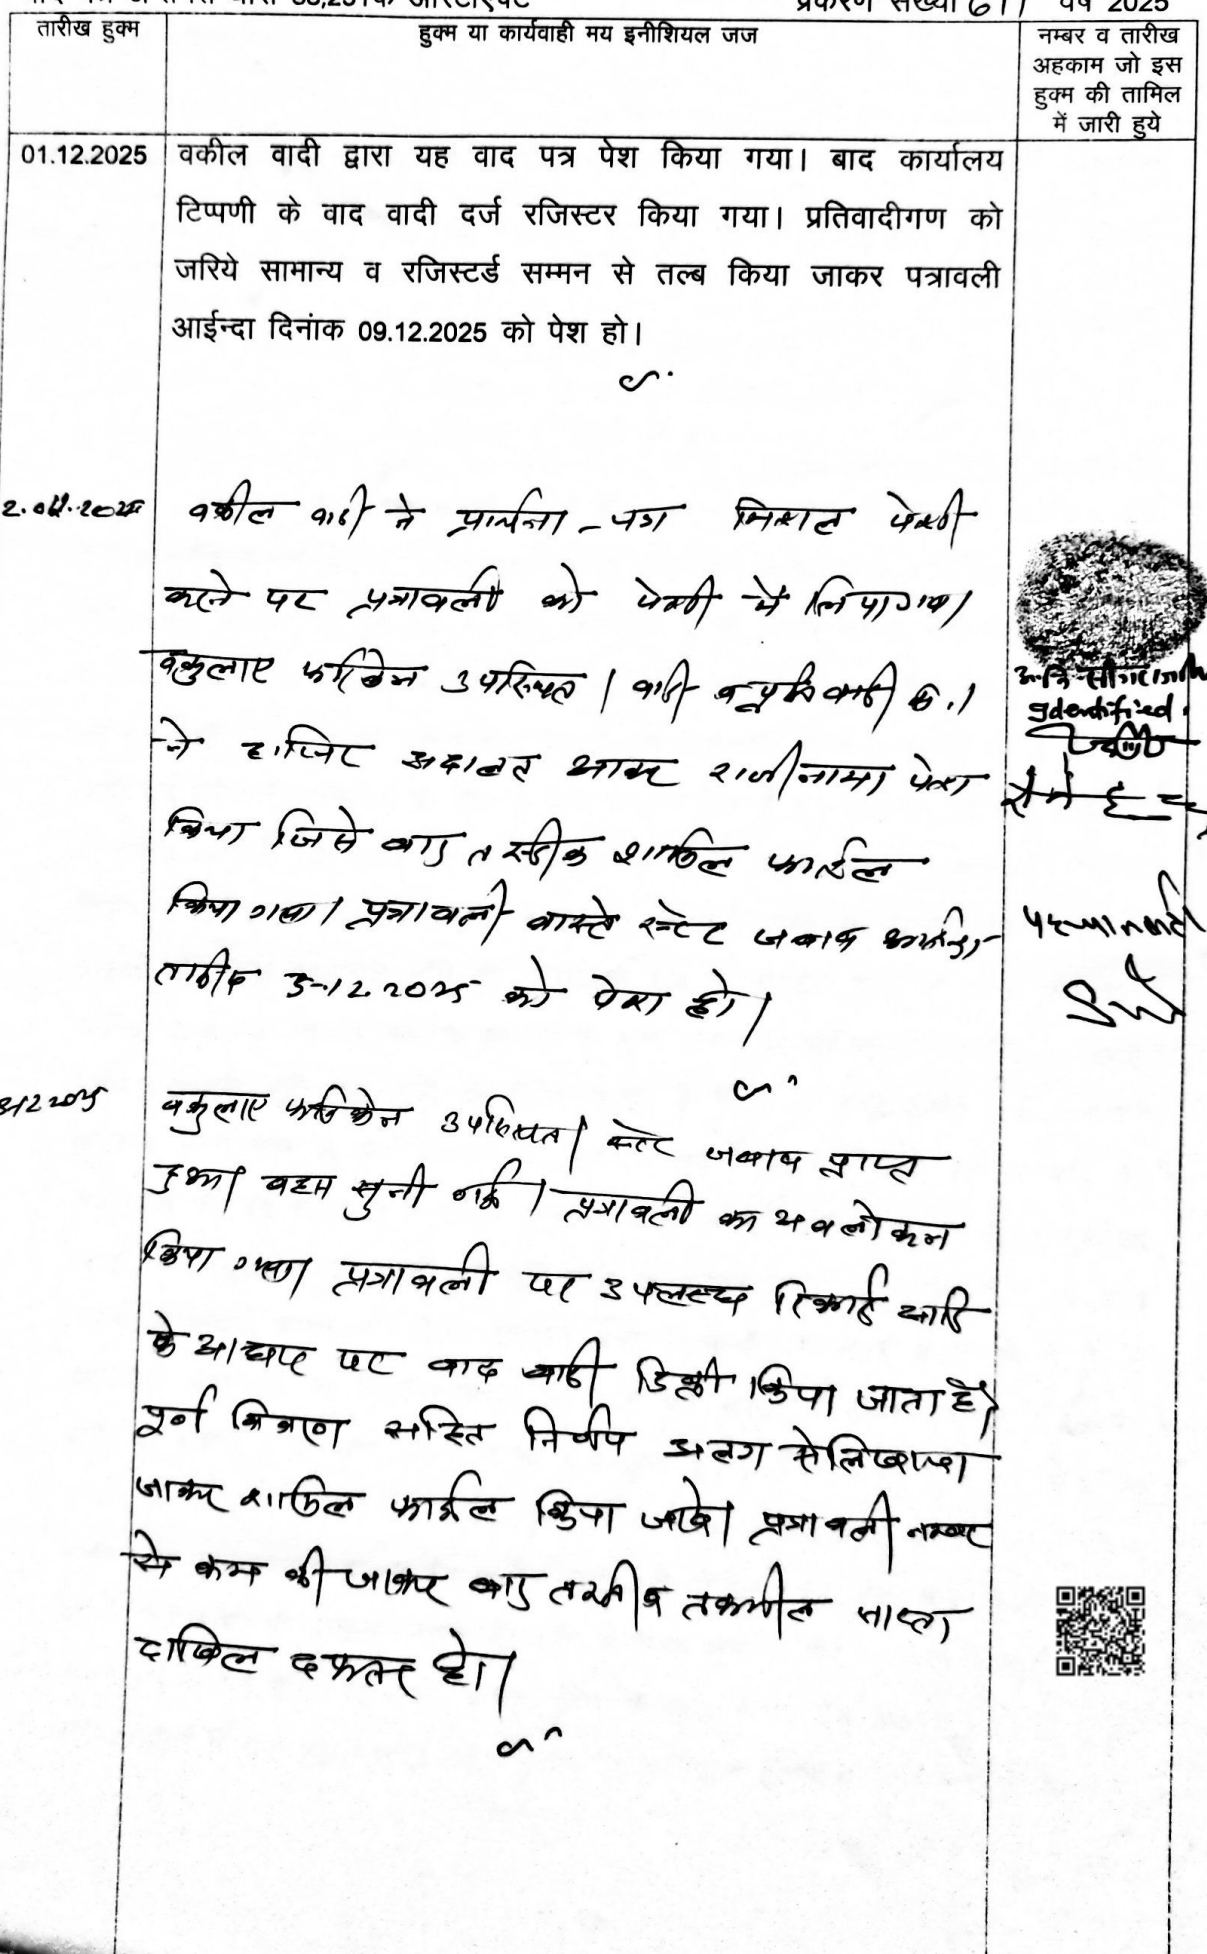 प्रकरण संख्या 611 वर्ष 2025
तारीख हुक्म
हुक्म या कार्यवाही मय इनीशियल जज
नम्बर व तारीख
अहकाम जो इस
हुक्म की तामिल
में जारी हुये
01.12.2025
वकील वादी द्वारा यह वाद पत्र पेश किया गया। बाद कार्यालय
टिप्पणी के वाद वादी दर्ज रजिस्टर किया गया। प्रतिवादीगण को
जरिये सामान्य व रजिस्टर्ड सम्मन से तल्ब किया जाकर पत्रावली
आईन्दा दिनांक 09.12.2025 को पेश हो।
वकील वादी ने प्रार्थना-पत्र मिसल पेशी
करने पर पत्रावली को पेशी में लिया गया।
वकुलाए फरिकेन उपस्थित। वादी व प्रतिवादी क्र.1
ने हाजिर अदालत आकर राजीनामा पेश
किया जिसे बाद तस्दीक शामिल फाईल
किया गया। पत्रावली वास्ते स्टेट जवाब आईन्दा
तारीख 3-12-2025 को पेश हो।
Identified
3-12-2025
वकुलाए फरिकेन उपस्थित। स्टेट जवाब प्राप्त
हुआ। बहस सुनी गई। पत्रावली का अवलोकन
किया गया। पत्रावली पर उपलब्ध रिकार्ड आदि
के आधार पर वाद वादी डिक्री किया जाता है।
पूर्ण विवरण सहित निर्णय अलग से लिखाया
जाकर शामिल फाईल किया जावे। पत्रावली नम्बर
से कम की जाकर बाद तरतीब तकमील जाप्ता
दाखिल दफ्तर हो।